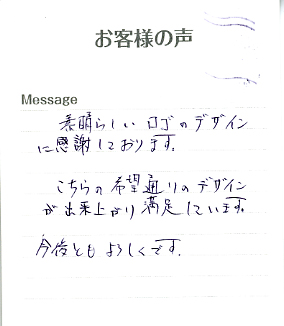 お客様の声
Message
素晴らしいロゴのデザイン
に感謝しております。
こちらの希望通りのデザイン
が出来上がり満足しています。
今後ともよろしくです。